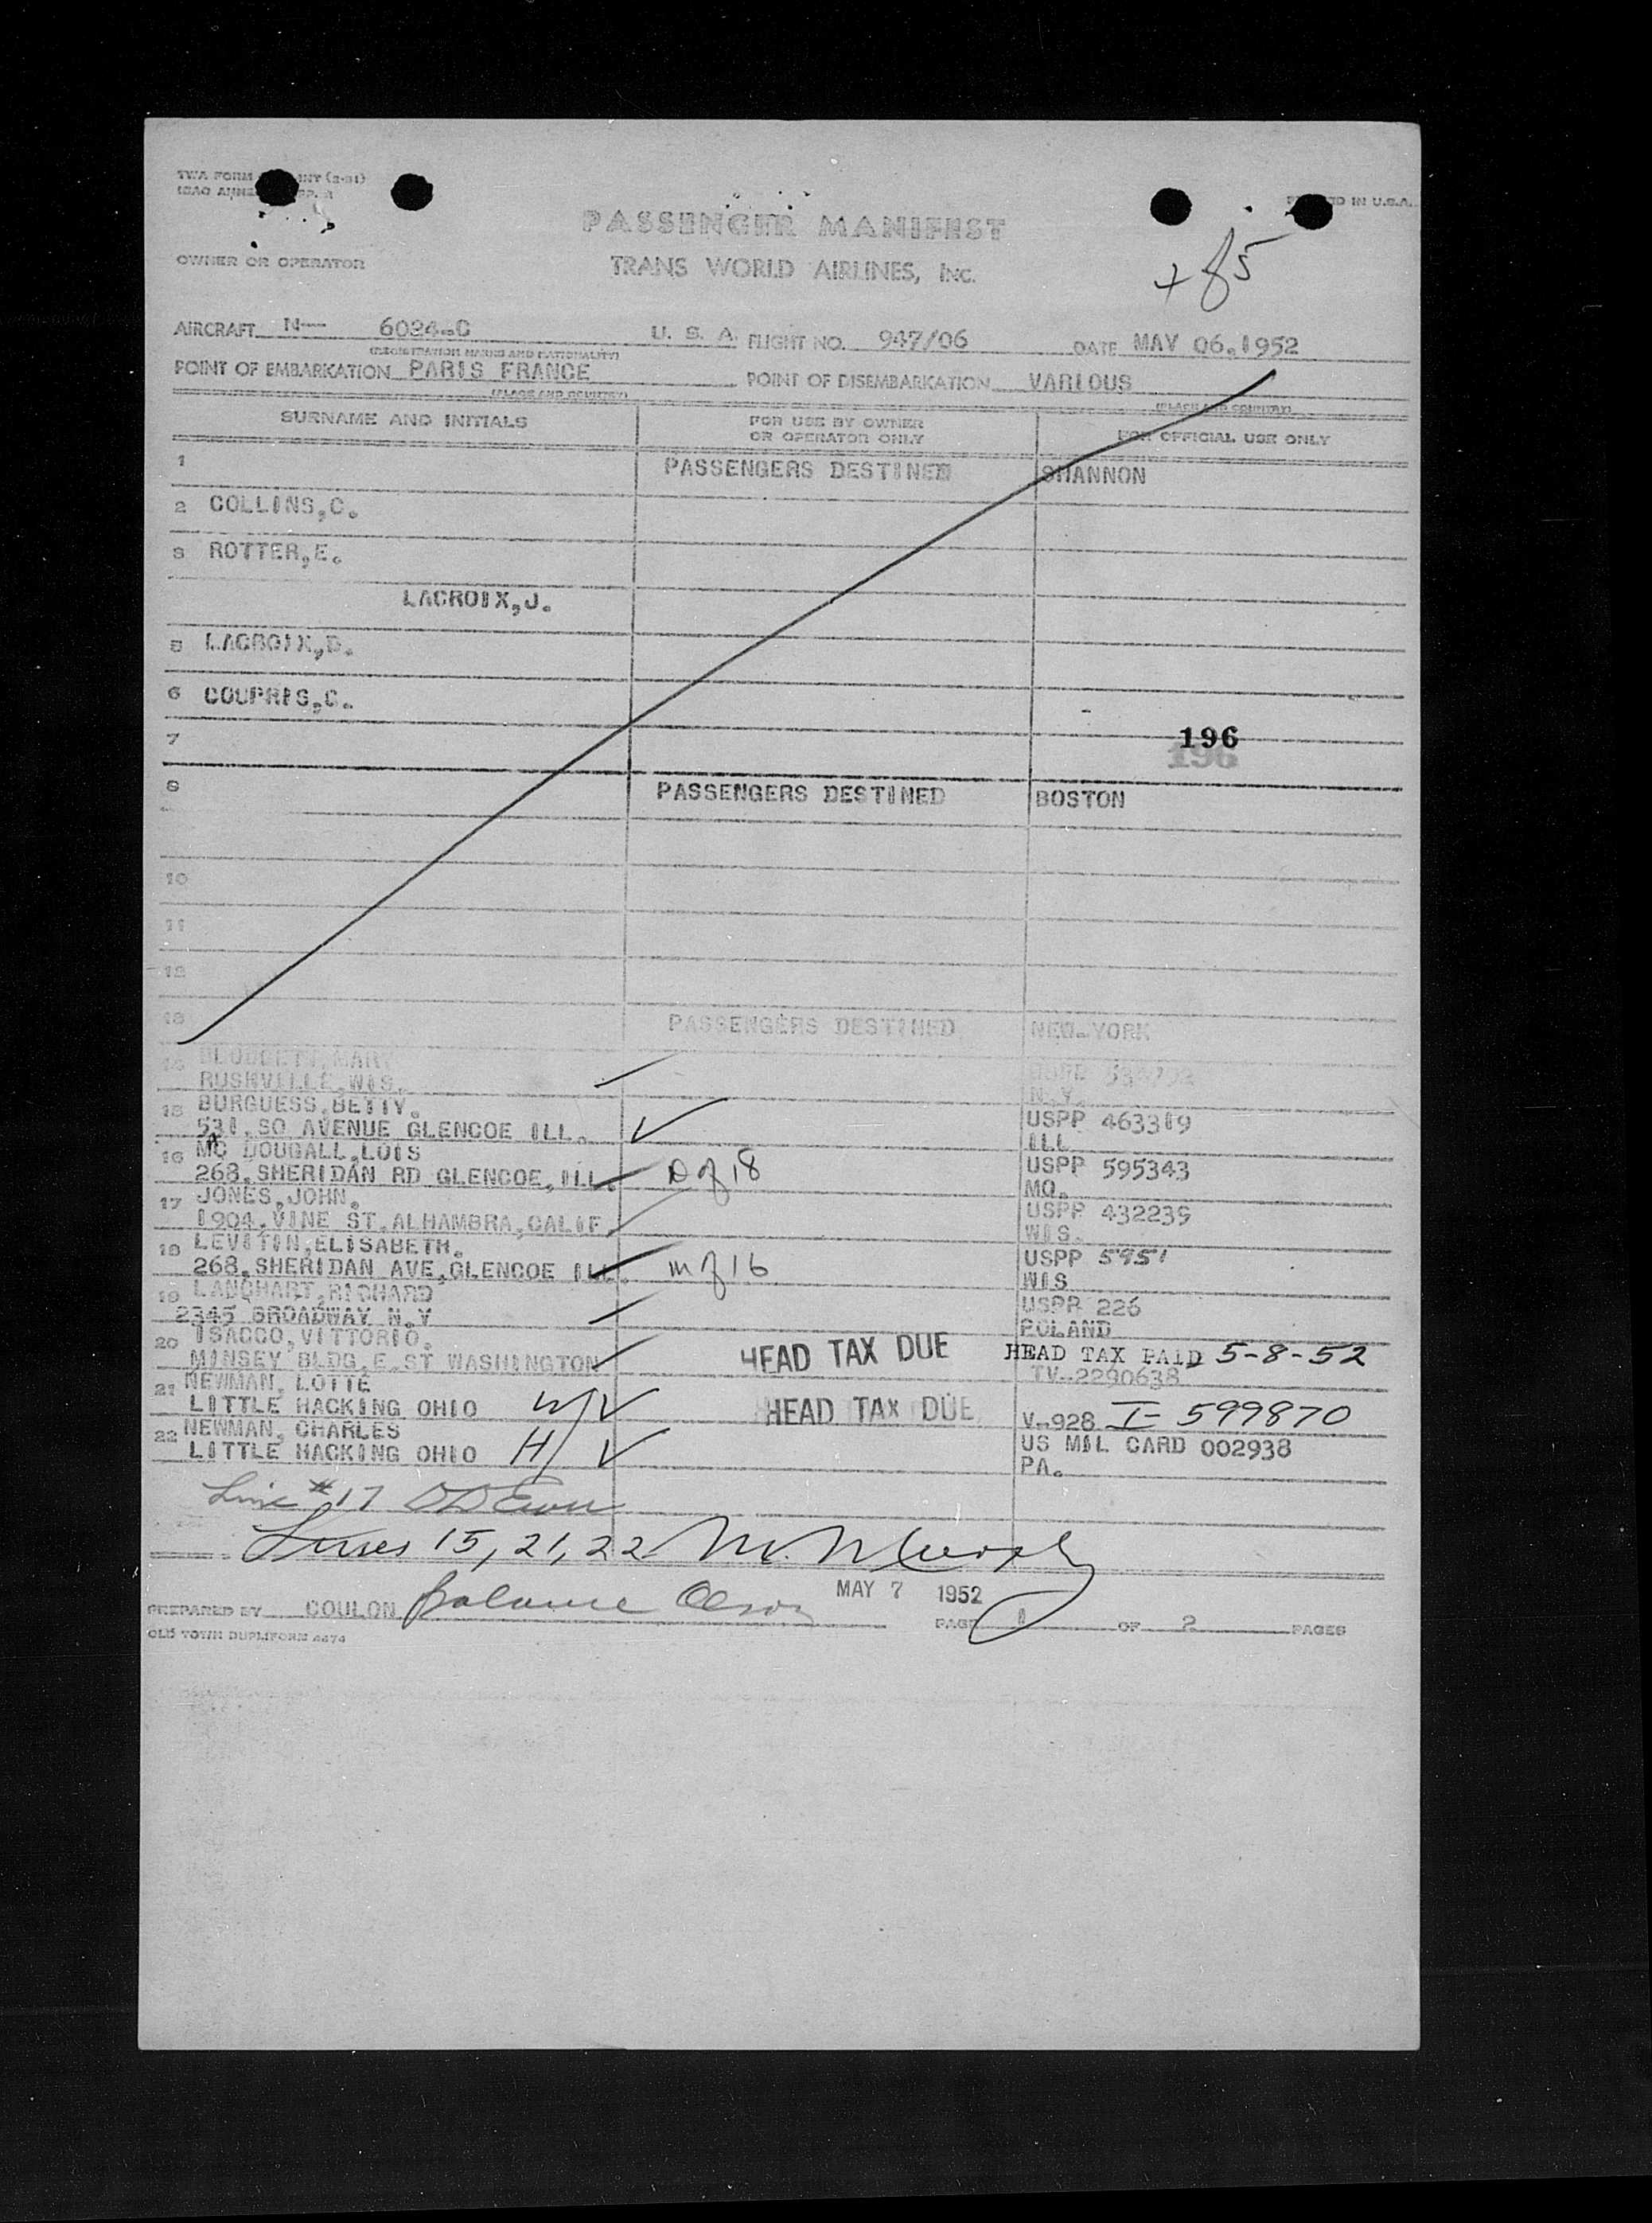 TWA FORM
PRINTED IN U.S.A.
PASSENGER MANIFEST
OWNER OR OPERATOR
TRANS WORLD AIRLINES, INC.
AIRCRAFT N— 6024-C U. S. A. FLIGHT NO. 947/06 DATE MAY 06,1952
(REGISTRATION MARKS AND NATIONALITY)
POINT OF EMBARKATION PARIS FRANCE POINT OF DISEMBARKATION VARIOUS
(PLACE AND COUNTRY) (PLACE AND COUNTRY)
SURNAME AND INITIALS FOR USE BY OWNER OR OPERATOR ONLY FOR OFFICIAL USE ONLY
1 PASSENGERS DESTINED SHANNON
2 COLLINS,C.
3 ROTTER,E.
LACROIX,J.
5 LACROIX,D.
6 COUPRIS,C.
7 196
8 PASSENGERS DESTINED BOSTON
10
11
12
13 PASSENGERS DESTINED NEW-YORK
14 MARY
RUSHVILLE,WIS.
N.Y.
15 BURGUESS,BETTY.
531,SO AVENUE GLENCOE ILL. USPP 463319
ILL
16 MC DOUGALL,LOIS
268,SHERIDAN RD GLENCOE,ILL. D of 18 USPP 595343
MO.
17 JONES,JOHN.
1904,VINE ST.ALHAMBRA,CALIF. USPP 432239
WIS.
18 LEVITIN,ELISABETH.
268,SHERIDAN AVE,GLENCOE ILL. M of 16 USPP 5951
WIS
19 RICHARD
2345 BROADWAY N.Y USPP 226
POLAND
20 ISACCO,VITTORIO.
MINSEY BLDG E.ST WASHINGTON HEAD TAX DUE HEAD TAX PAID 5-8-52
TV-2290638
21 NEWMAN, LOTTE
LITTLE HACKING OHIO W/ HEAD TAX DUE V-928 I-599870
22 NEWMAN, CHARLES US MIL CARD 002938
LITTLE HACKING OHIO H/ PA.
Line #17
Lines 15, 21, 22 M. Murphy
PREPARED BY COULON Balance Olson MAY 7 1952 PAGE 1 OF 2 PAGES
OLD TOWN DUPLIFORM 4474